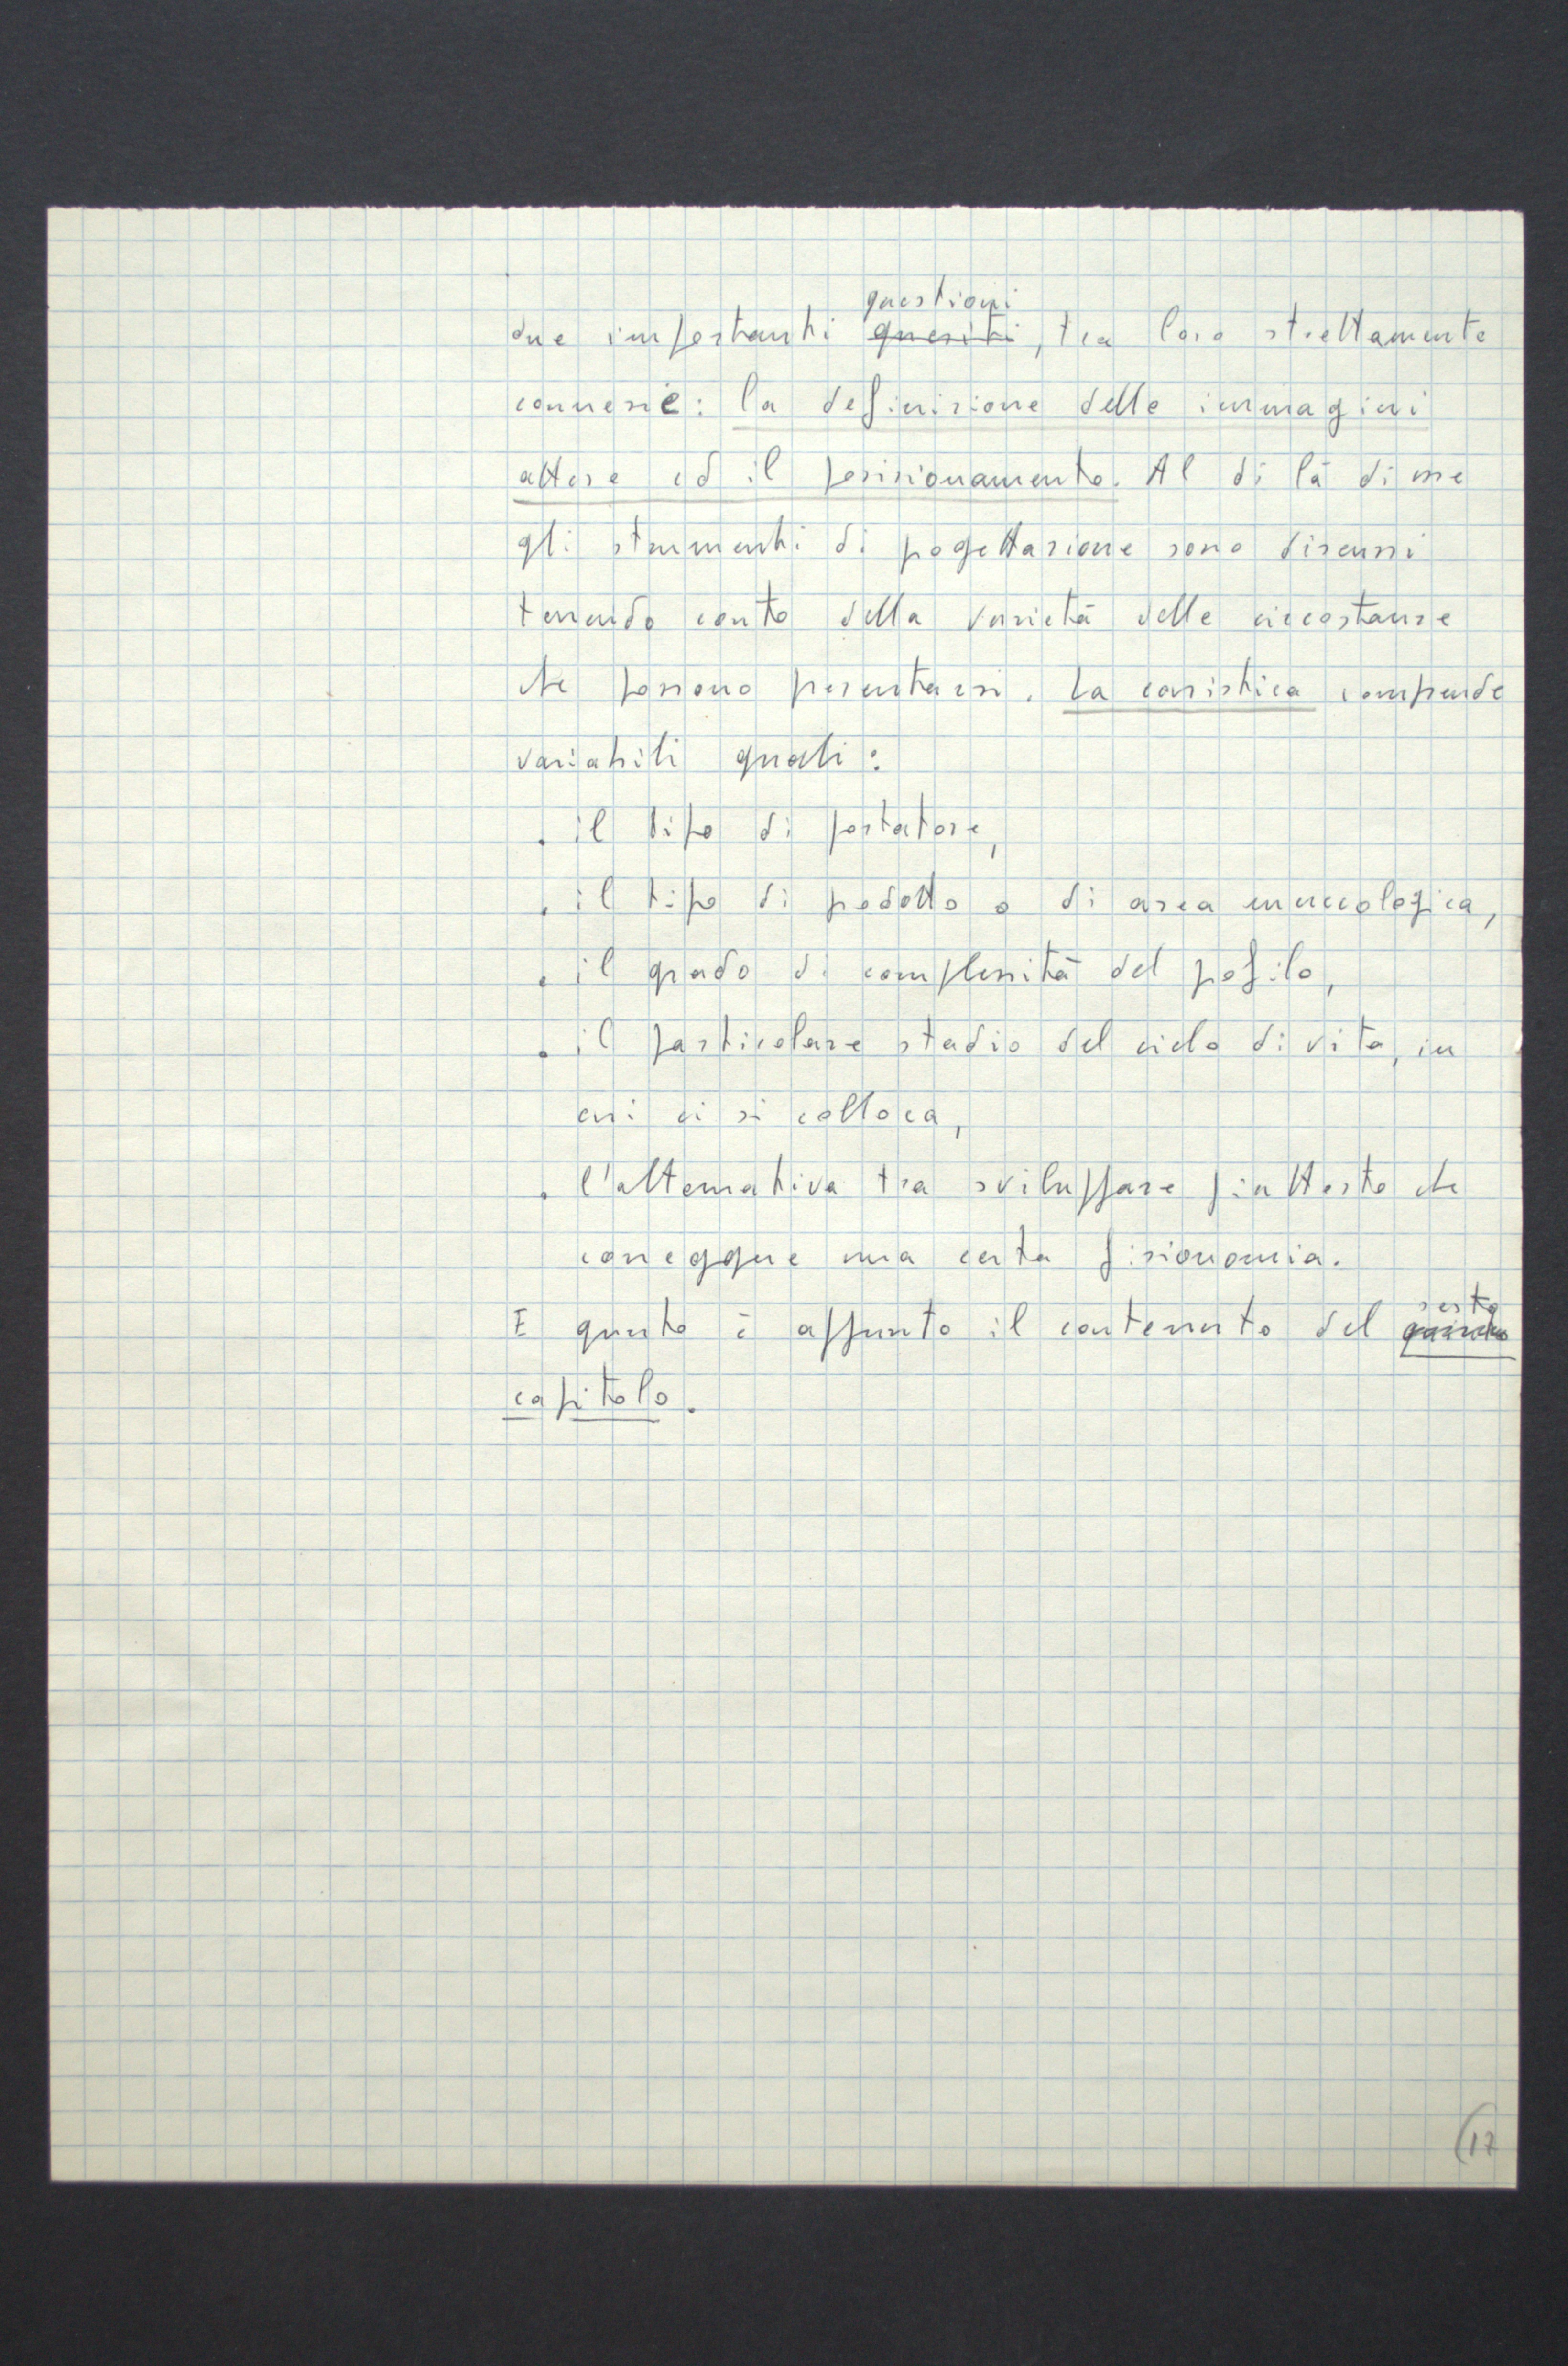 questioni
due importanti quesiti, tra loro strettamente
connesse: la definizione delle immagini
attese ed il posizionamento. Al di là di esse
gli strumenti di progettazione sono discussi
tenendo conto della varietà delle circostanze
che possono presentarsi. La casistica comprende
variabili quali:
. il tipo di portatore,
. il tipo di prodotto o di area merceologica,
. il grado di complessità del profilo,
. il particolare stadio del ciclo di vita, in
cui ci si colloca,
. l'alternativa tra sviluppare piuttosto che
correggere una certa fisionomia.
sesto
E questo è appunto il contenuto del quinto
capitolo.
(17